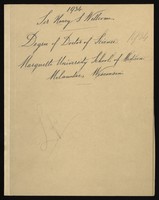 1934
Sir Henry S Wellcome
Degree of Doctor of Science
Marquette University School of Medicine
Milwaukee, Wisconsin